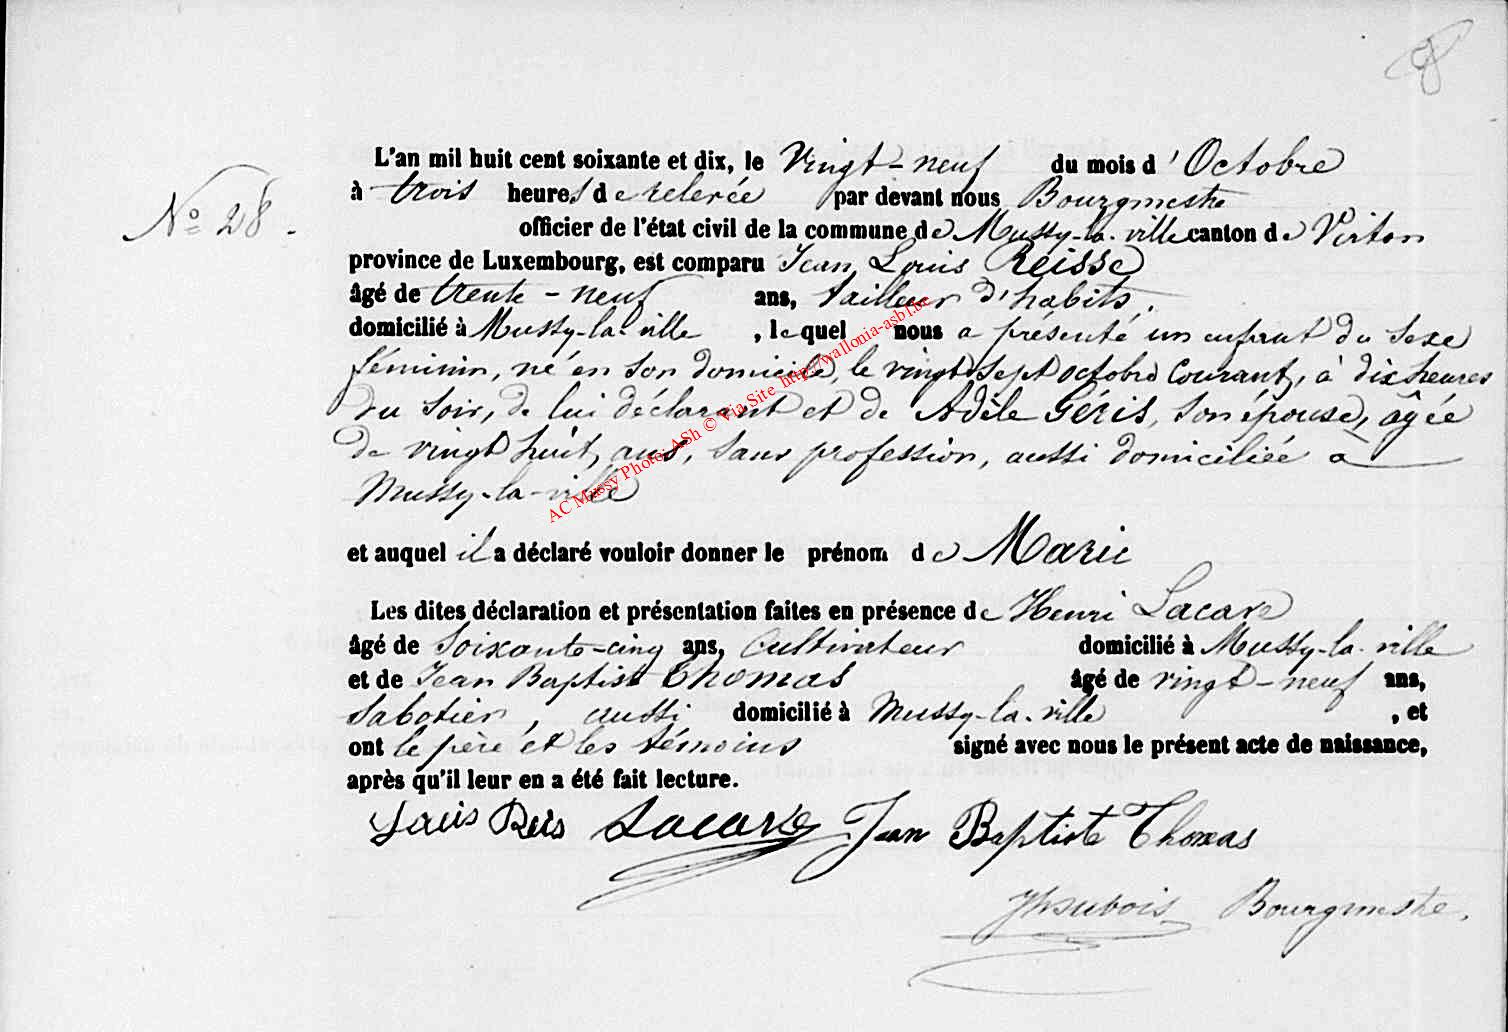 8
Nº 28.
L'an mil huit cent soixante et dix, le Vingt-neuf du mois d'Octobre
à trois heures de relevée par devant nous Bourgmestre
officier de l'état civil de la commune de Mussy-la-ville canton de Virton
province de Luxembourg, est comparu Jean Louis Reisse
âgé de trente-neuf ans, tailleur d'habits,
domicilié à Mussy-la-ville, lequel nous a présenté un enfant du sexe
féminin, né en son domicile, le vingt sept octobre courant, à dix heures
du soir, de lui déclarant et de Adèle Géris, son épouse, âgée
de vingt huit ans, sans profession, aussi domiciliée à
Mussy-la-ville
AC Mussy Photo: ASh © Via Site http://wallonia-asbl.be
et auquel il a déclaré vouloir donner le prénom de Marie
Les dites déclaration et présentation faites en présence de Henri Lacave
âgé de soixante-cinq ans, cultivateur domicilié à Mussy-la-ville
et de Jean Baptiste Thomas âgé de vingt-neuf ans,
sabotier, aussi domicilié à Mussy-la-ville, et
ont le père et les témoins signé avec nous le présent acte de naissance,
après qu'il leur en a été fait lecture.
Louis Reis Lacave Jean Baptiste Thomas
Dubois Bourgmestre.